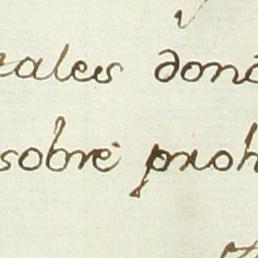 rales dond
sobre proh